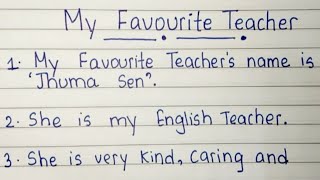 My Favourite Teacher
1. My Favourite Teacher's name is
'Jhuma Sen'.
2. She is my English Teacher.
3. She is very kind, caring and